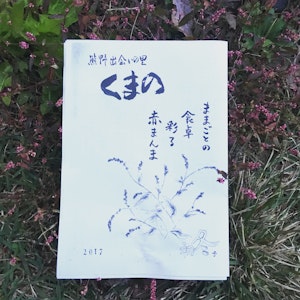 熊野出会いの里
くまの
ままごとの
食卓
彩る
赤まんま
2017